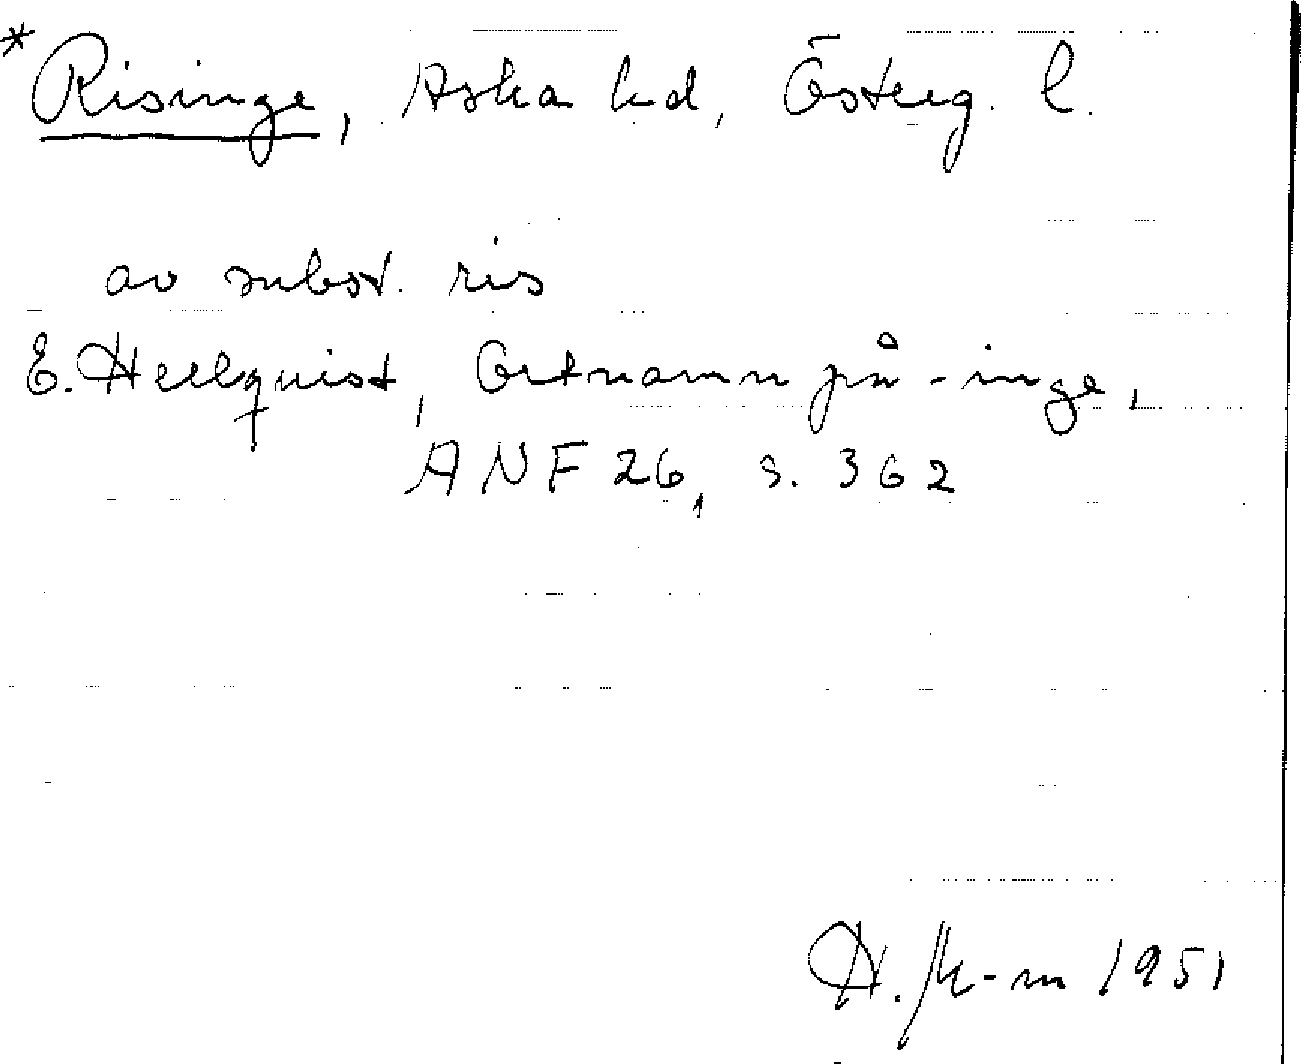 * Risinge, Aska hd, Österg. l.
av subst. ris
E. Hellquist, Ortnamn på -inge,
ANF 26, s. 362
1951